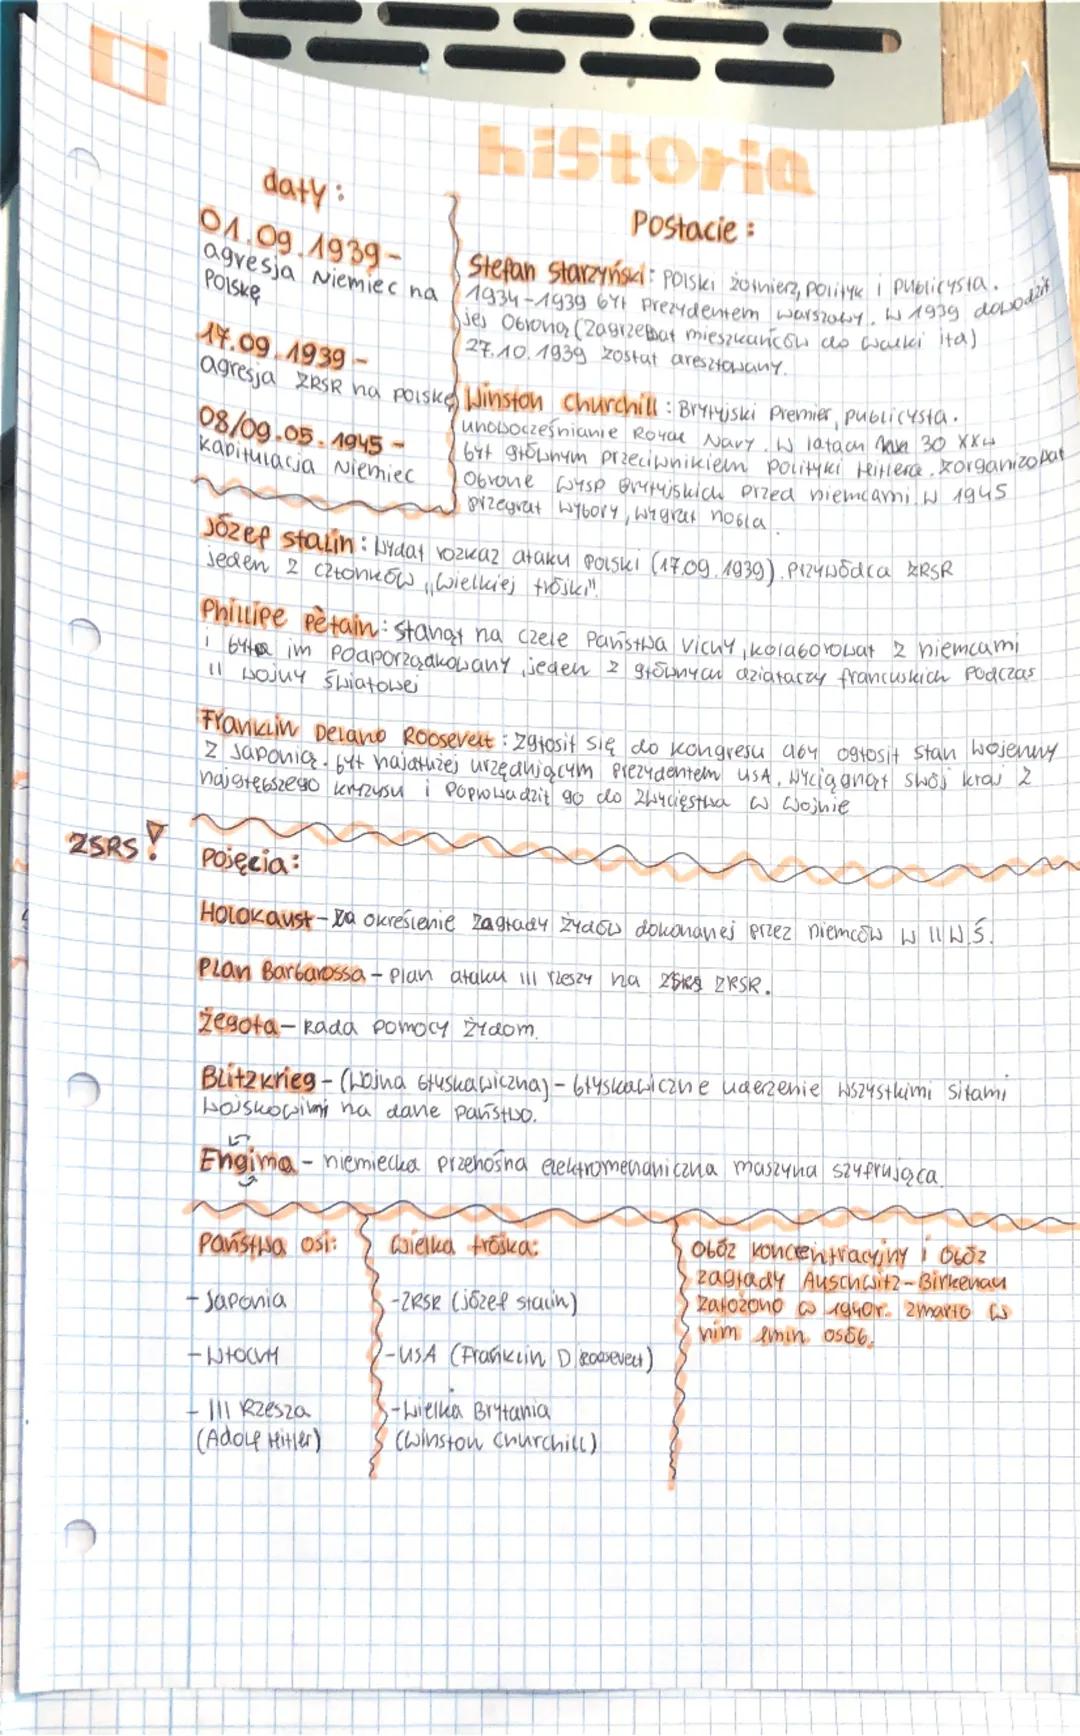 historia
daty:
01.09.1939-
agresja Niemiec na
Polskę
17.09.1939-
agresja ZRSR na Polskę
08/09.05.1945-
kapitulacja Niemiec
Postacie:
Stefan Starzyński: Polski żołnierz, polityk i publicysta.
1934-1939 był prezydentem warszawy. W 1939 dowodził
jej Obroną (zagrzewał mieszkańców do walki itd)
27.10.1939 został aresztowany.
Winston Churchill: Brytyjski Premier, publicysta.
unowocześnianie Royal Navy. W latach 30 XXw
był głównym przeciwnikiem polityki Hitlera. zorganizował
Obronę wysp Brytyjskich przed niemcami. W 1945
przegrał wybory, wygrał nobla
Józef Stalin: wydał rozkaz ataku Polski (17.09.1939). Przywódca ZRSR
jeden z członków „Wielkiej trójki".
Phillipe Pètain: stanął na czele Państwa Vichy, kolaborował z niemcami
i był im podporządkowany, jeden z głównych działaczy francuskich Podczas
II wojny światowej
Franklin Delano Roosevelt: zgłosił się do kongresu aby ogłosił stan wojenny
z Japonią. był najdłużej urzędującym prezydentem USA. Wyciągnął swój kraj z
najgłębszego kryzysu i poprowadził go do zwycięstwa w wojnie
ZSRS!
Pojęcia:
Holokaust- określenie zagłady żydów dokonanej przez niemców w II W.Ś.
Plan Barbarossa - plan ataku III rzeszy na ZRSR.
Żegota- Rada pomocy żydom.
Blitzkrieg - (wojna błyskawiczna) - błyskawiczne uderzenie wszystkimi siłami
wojskowimi na dane państwo.
Engima - niemiecka przenośna elektromechaniczna maszyna szyfrująca.
Państwa osi:
-Japonia
-Włochy
- III Rzesza
(Adolf Hitler)
Wielka trójka:
-ZRSR (józef stalin)
-USA (Franklin D Roosevelt)
-Wielka Brytania
(Winston Churchill)
Obóz koncentracyjny i Obóz
zagłady Auschwitz-Birkenau
Założono w 1940r. zmarło w
nim 1mln osób.